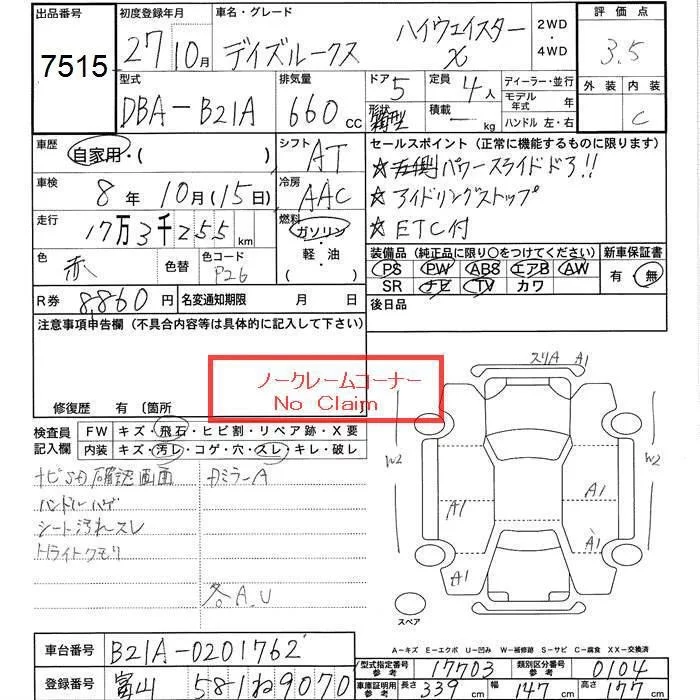 出品番号
7515
初度登録年月
27 10月
車名・グレード
デイズルークス ハイウェイスター X
2WD
・
4WD
評価点
3.5
型式
DBA-B21A
排気量
660 cc
ドア
5
形状
箱型
定員
4人
積載
— kg
ディーラー・並行
モデル年式 年
ハンドル 左・右
外装
内装
C
車歴
自家用・( )
シフト
AT
セールスポイント (正常に機能するものに限ります)
☆右側パワースライドドア!!
☆アイドリングストップ
☆ETC付
車検
8年 10月(15日)
冷房
AAC
走行
17万3千255 km
燃料
ガソリン
・
軽・油
( )
色
赤
色替
色コード
P26
装備品 (純正品に限り○をつけてください)
PS PW ABS エアB AW
SR ナビ TV カワ
新車保証書
有・無
R券 8,860円
名変通知期限 月 日
後日品
注意事項申告欄 (不具合内容等は具体的に記入して下さい)
ノークレームコーナー
No Claim
修復歴 有〔箇所 〕
検査員記入欄
FW キズ・飛石・ヒビ割・リペア跡・X要
内装 キズ・汚レ・コゲ・穴・スレ・キレ・破レ
ナビSD確認画面
ハンドルハゲ
シート汚れスレ
トライトクモリ
カミラーA
各A.U
スリA A1
W2
W2
A1
A1
A1
A1
A1
スペア
A-キズ E-エクボ U-凹み W-補修跡 S-サビ C-腐食 XX-交換済
車台番号
B21A-0201762
登録番号
富山 581ね9070
型式指定番号
参考
17703
類別区分番号
参考
0104
車庫証明用
参考
長さ 339 cm
幅 147 cm
高さ 177 cm